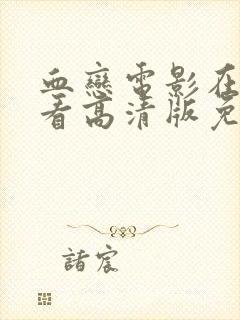 血戀電影在
看高清版免
諸宸